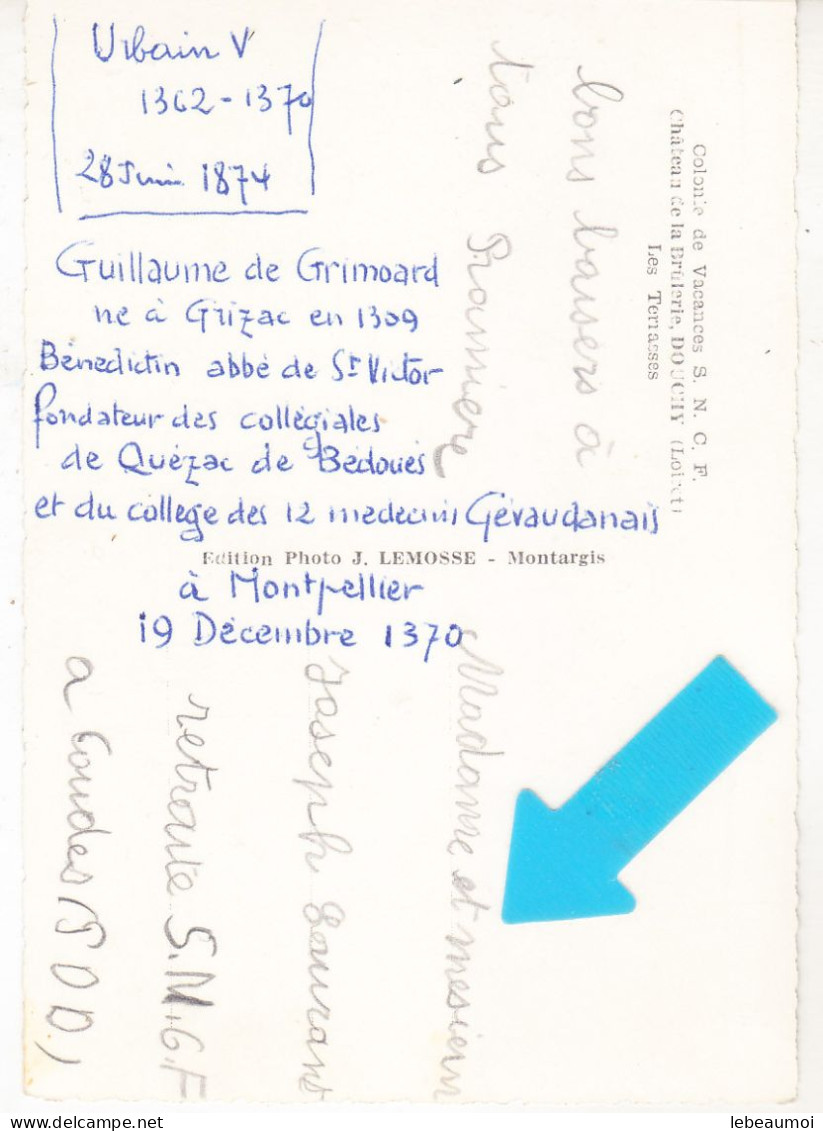 Urbain V
1362-1370
28 Juin 1874
Guillaume de Grimoard
né à Grizac en 1309
Bénédictin abbé de St Victor
fondateur des collégiales
de Quézac de Bédoués
et du college des 12 medecins Gévaudanais
à Montpellier
19 Décembre 1370
Colonie de Vacances S. N. C. F.
Château de la Brûlerie, DOUCHY (Loiret)
Les Terrasses
bons baisers à
tous
Edition Photo J. LEMOSSE - Montargis
Madame et mesieur
Joseph Laurant
retraite S.N.C.F
a Coudes (P D D)
lebeaumoi